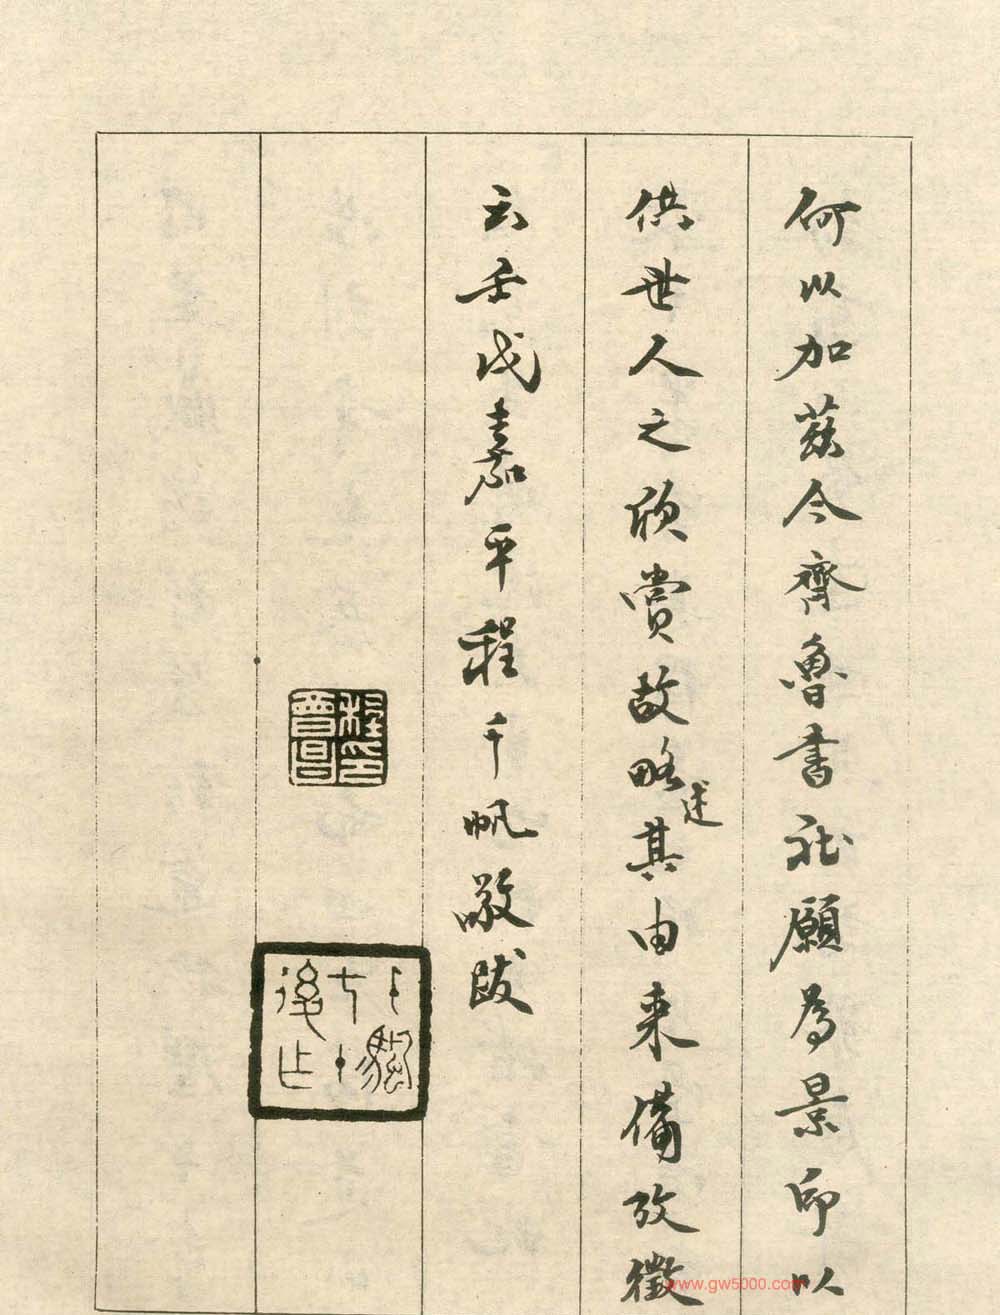 何以加茲今齊魯書社願為景印以
供世人之欣賞故略述其由來備攷徵
云壬戌嘉平程千帆敬跋
程會昌印
千帆七十後作
www.gw5000.com